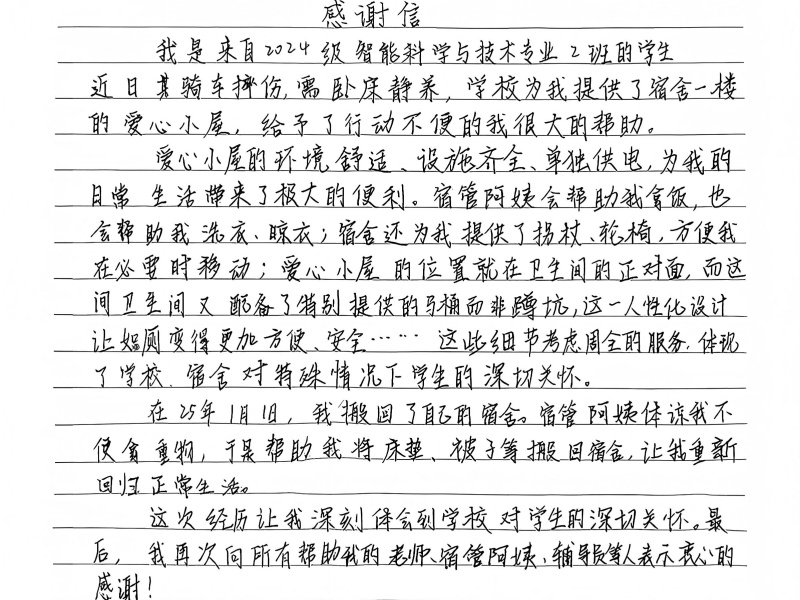 感谢信
我是来自2024级智能科学与技术专业2班的学生
近日某骑车摔伤,需卧床静养,学校为我提供了宿舍一楼
的爱心小屋,给予了行动不便的我很大的帮助。
爱心小屋的环境舒适、设施齐全、单独供电,为我的
日常生活带来了极大的便利。宿管阿姨会帮助我拿饭,也
会帮助我洗衣、晾衣;宿舍还为我提供了拐杖、轮椅,方便我
在必要时移动;爱心小屋的位置就在卫生间的正对面,而这
间卫生间又配备了特别提供的马桶而非蹲坑,这一人性化设计
让如厕变得更加方便、安全……这些细节考虑周全的服务,体现
了学校、宿舍对特殊情况下学生的深切关怀。
在25年1月1日,我搬回了自己的宿舍。宿管阿姨体谅我不
便拿重物,于是帮助我将床垫、被子等搬回宿舍,让我重新
回归正常生活。
这次经历让我深刻体会到学校对学生的深切关怀。最
后,我再次向所有帮助我的老师、宿管阿姨、辅导员等人表示衷心的
感谢!